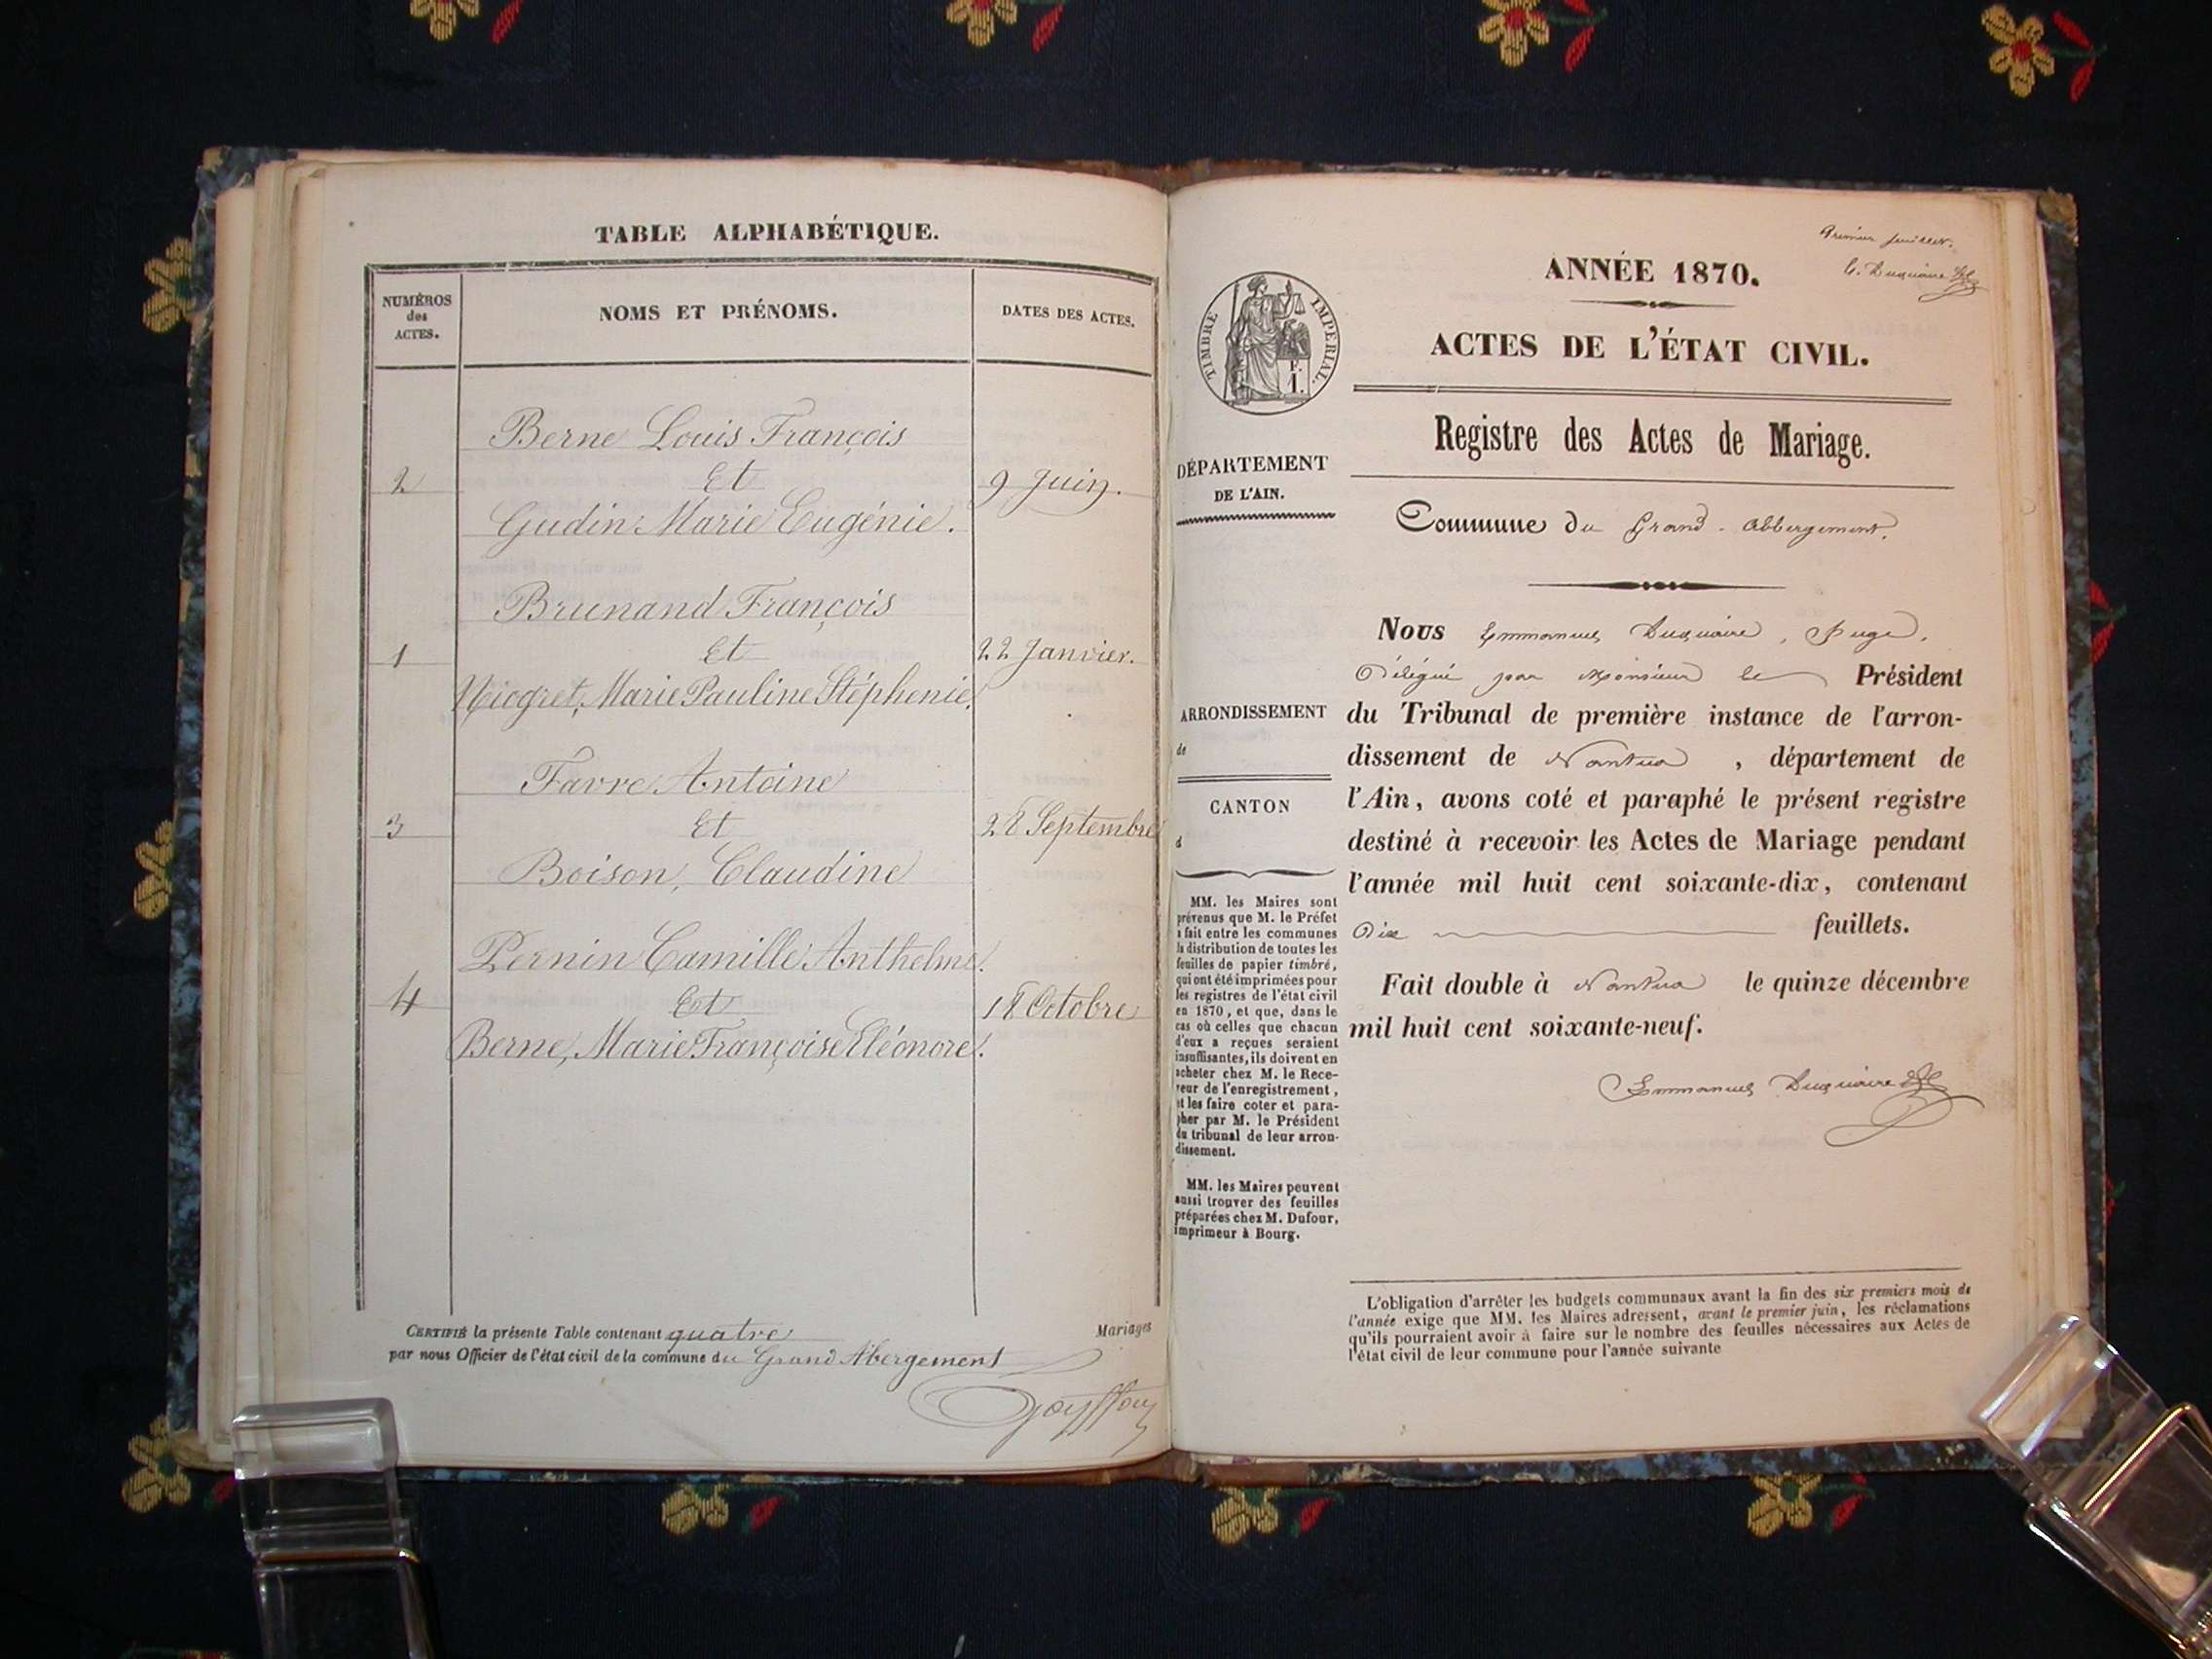 TABLE ALPHABÉTIQUE.
NUMÉROS
des
ACTES.
NOMS ET PRÉNOMS.
DATES DES ACTES.
Berne Louis François
2 Et 9 Juin.
Gudin Marie Eugénie.
Brunand François
1 Et 22 Janvier.
Niogret, Marie Pauline Stéphenie.
Favre Antoine
3 Et 28 Septembre
Boison, Claudine
Pernin Camille Anthelme.
4 Et 18 Octobre
Berne, Marie Françoise Eléonore.
CERTIFIÉ la présente Table contenant quatre Mariages
par nous Officier de l'état civil de la commune du Grand Abergement
Goyffon
Premier feuillet.
E. Duquaire
ANNÉE 1870.
TIMBRE IMPÉRIAL.
F.
1.
ACTES DE L'ÉTAT CIVIL.
Registre des Actes de Mariage.
DÉPARTEMENT
DE L'AIN.
Commune du Grand-Abbergement.
Nous Emmanuel Duquaire, Juge,
Délégué par Monsieur le Président
du Tribunal de première instance de l'arron-
dissement de Nantua, département de
l'Ain, avons coté et paraphé le présent registre
destiné à recevoir les Actes de Mariage pendant
l'année mil huit cent soixante-dix, contenant
Dix feuillets.
Fait double à Nantua le quinze décembre
mil huit cent soixante-neuf.
Emmanuel Duquaire
ARRONDISSEMENT
de
CANTON
d
MM. les Maires sont
prévenus que M. le Préfet
a fait entre les communes
la distribution de toutes les
feuilles de papier timbré,
qui ont été imprimées pour
les registres de l'état civil
en 1870, et que, dans le
cas où celles que chacun
d'eux a reçues seraient
insuffisantes, ils doivent en
acheter chez M. le Rece-
veur de l'enregistrement,
et les faire coter et para-
pher par M. le Président
du tribunal de leur arron-
dissement.
MM. les Maires peuvent
aussi trouver des feuilles
préparées chez M. Dufour,
imprimeur à Bourg.
L'obligation d'arrêter les budgets communaux avant la fin des six premiers mois de
l'année exige que MM. les Maires adressent, avant le premier juin, les réclamations
qu'ils pourraient avoir à faire sur le nombre des feuilles nécessaires aux Actes de
l'état civil de leur commune pour l'année suivante